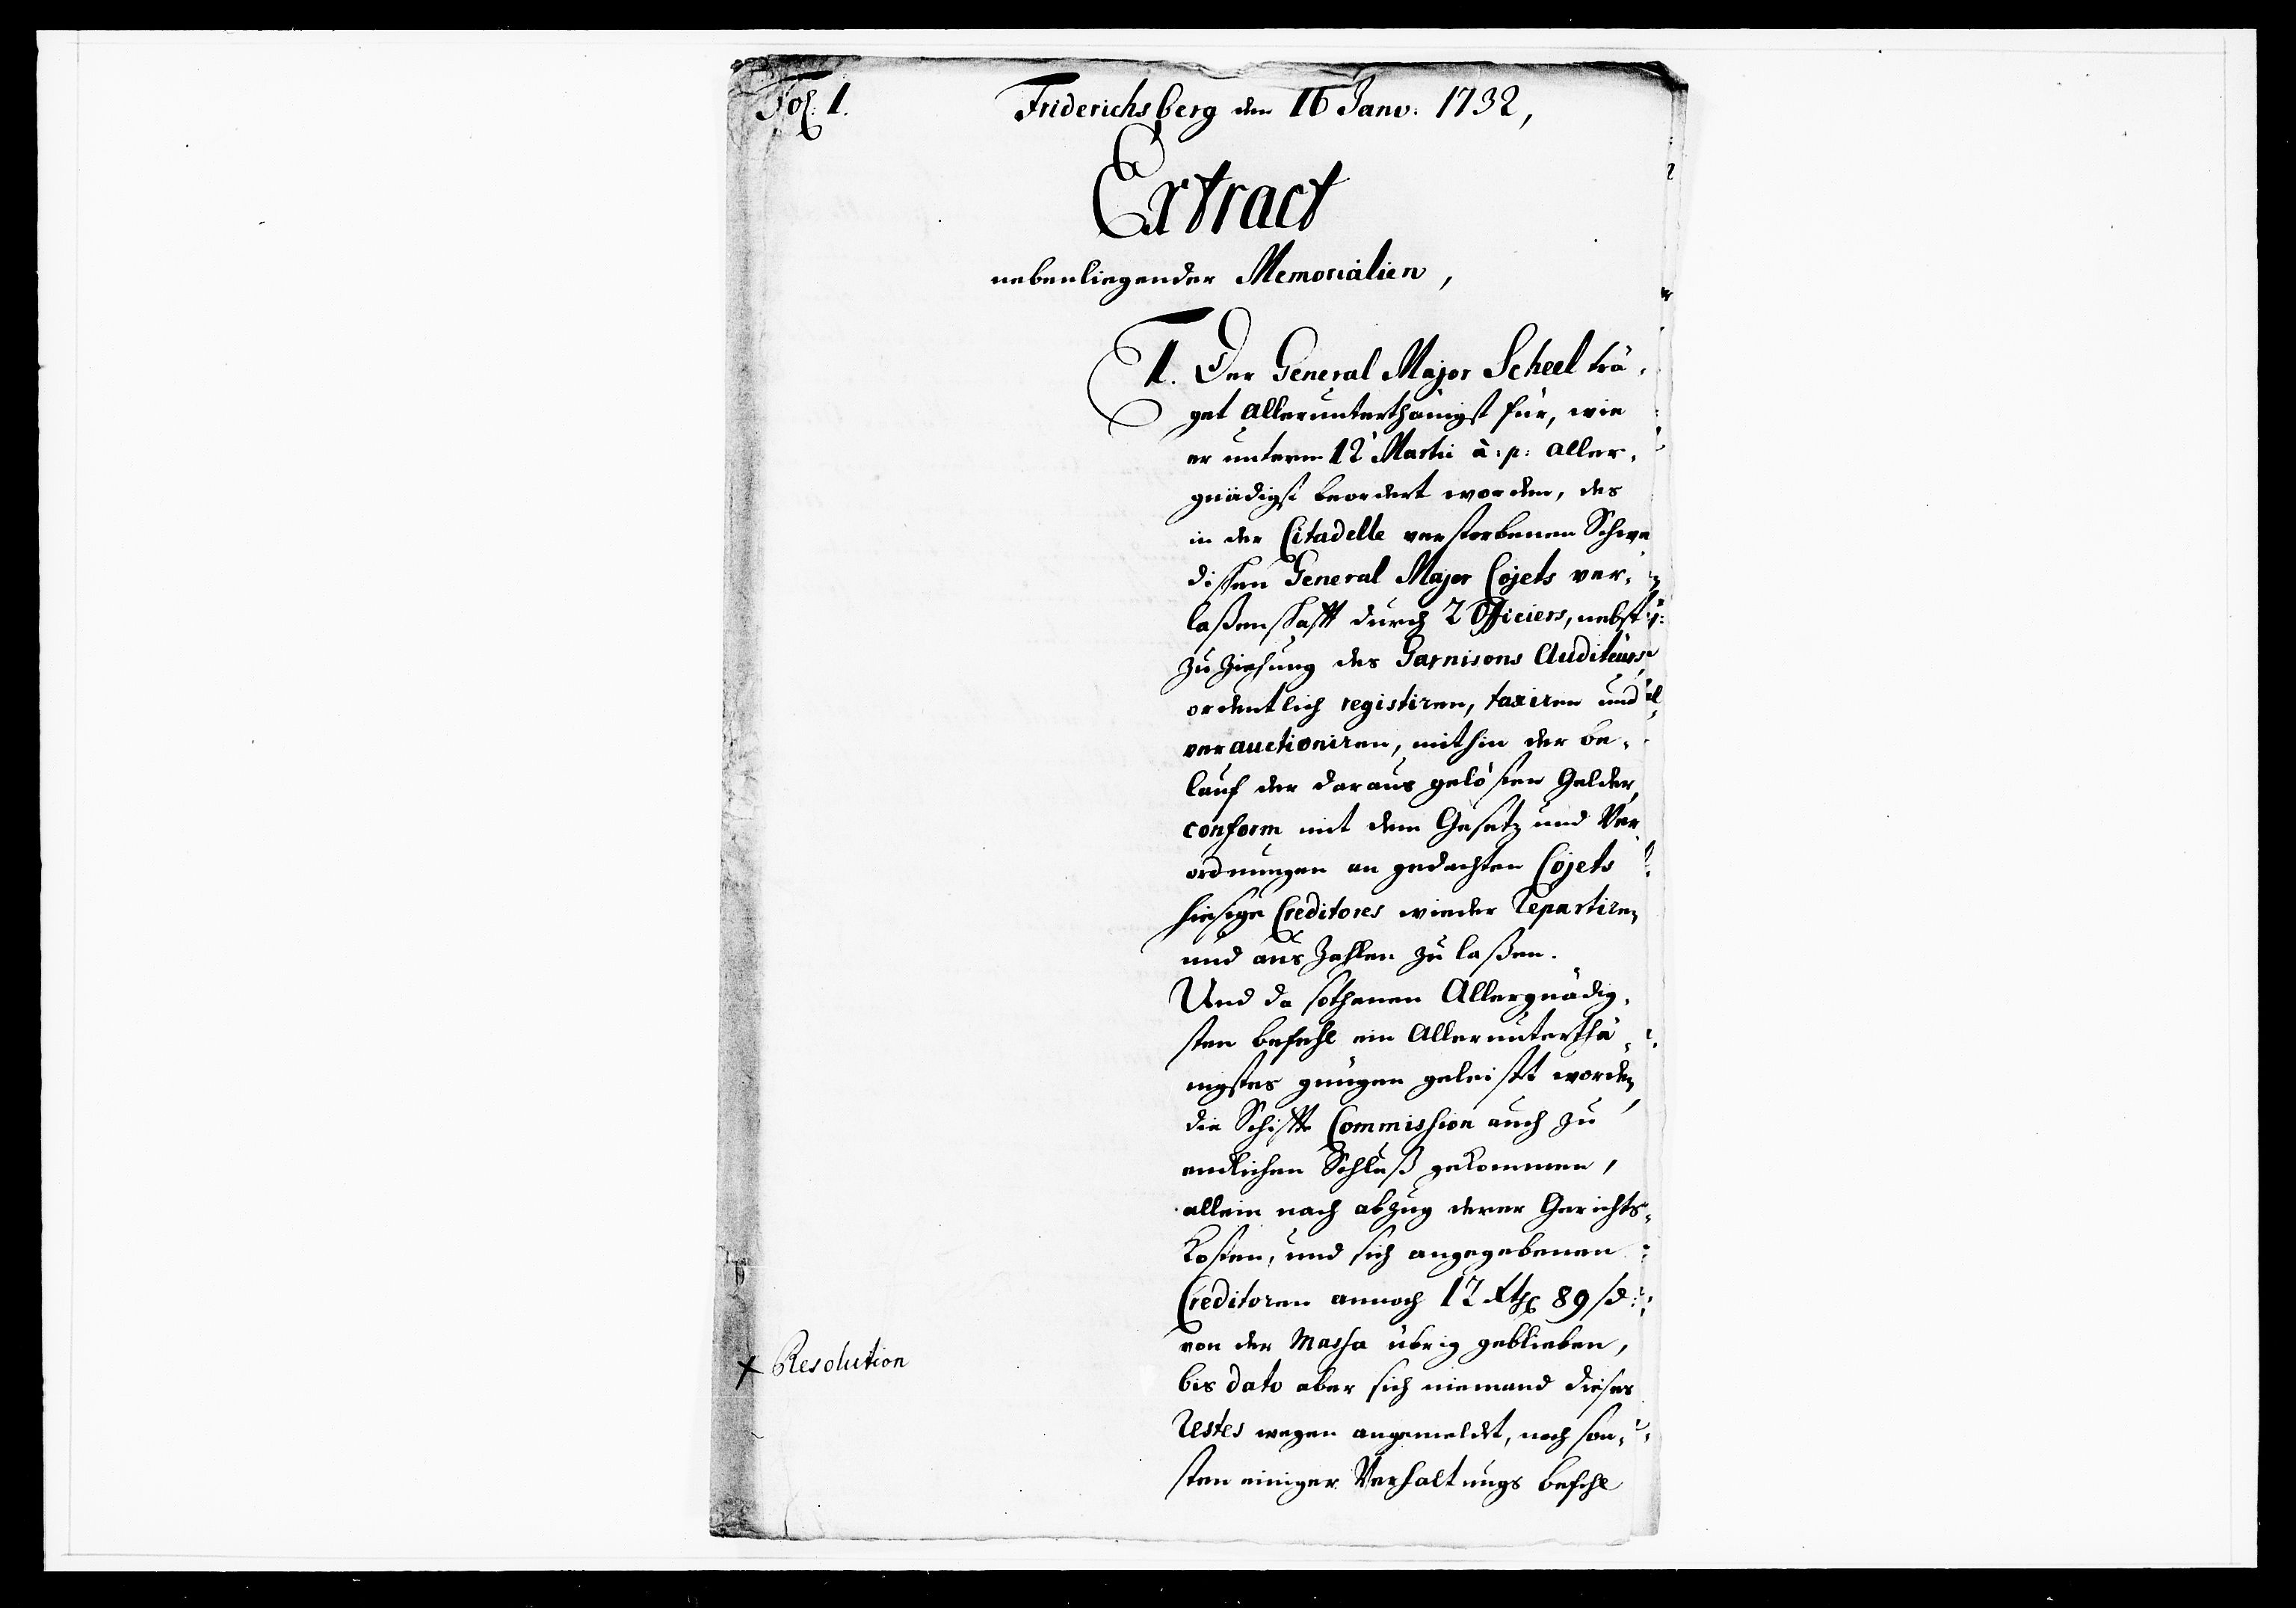 Fol. 1.
Friderichsberg den 16 Janv. 1732,
Extract
nebenliegender Memorialien,
1. Der General Major Scheel trä,
get Allerunterthänigst für, wie
er unterm 12 Martii à. p: aller,
gnädigst beordert worden, des
in der Citadelle verstorbenen Schwe
dischen General Major Cojets ver,
laßenschafft durch 2 Officiers, nebst
Zuziehung des Garnisons Auditeurs
ordentlich registiren, taxiren und
verauctioniren, mithin der be,
lauf der daraus gelösten Gelder,
conform mit dem Gesetz und Ver
ordnungen an gedachten Cojets
hiesige Creditores wieder Repartiren
und aus Zahlen zu laßen.
Und da sothanen Allergnädig,
sten befehl ein Allerunterthä,
nigstes genügen geleistet worden,
die Schiffte Commission auch zu
endlichen Schluß gekommen,
allein nach abzug derer Gerichts,
Kosten, und sich angegebenen
Creditoren annoch 12 Rthr 89 sd:
von der Massa übrig geblieben,
Resolution
bis dato aber sich niemand dieses
Restes wegen angemeldet, noch son,
sten einiger Verhaltungs befehl